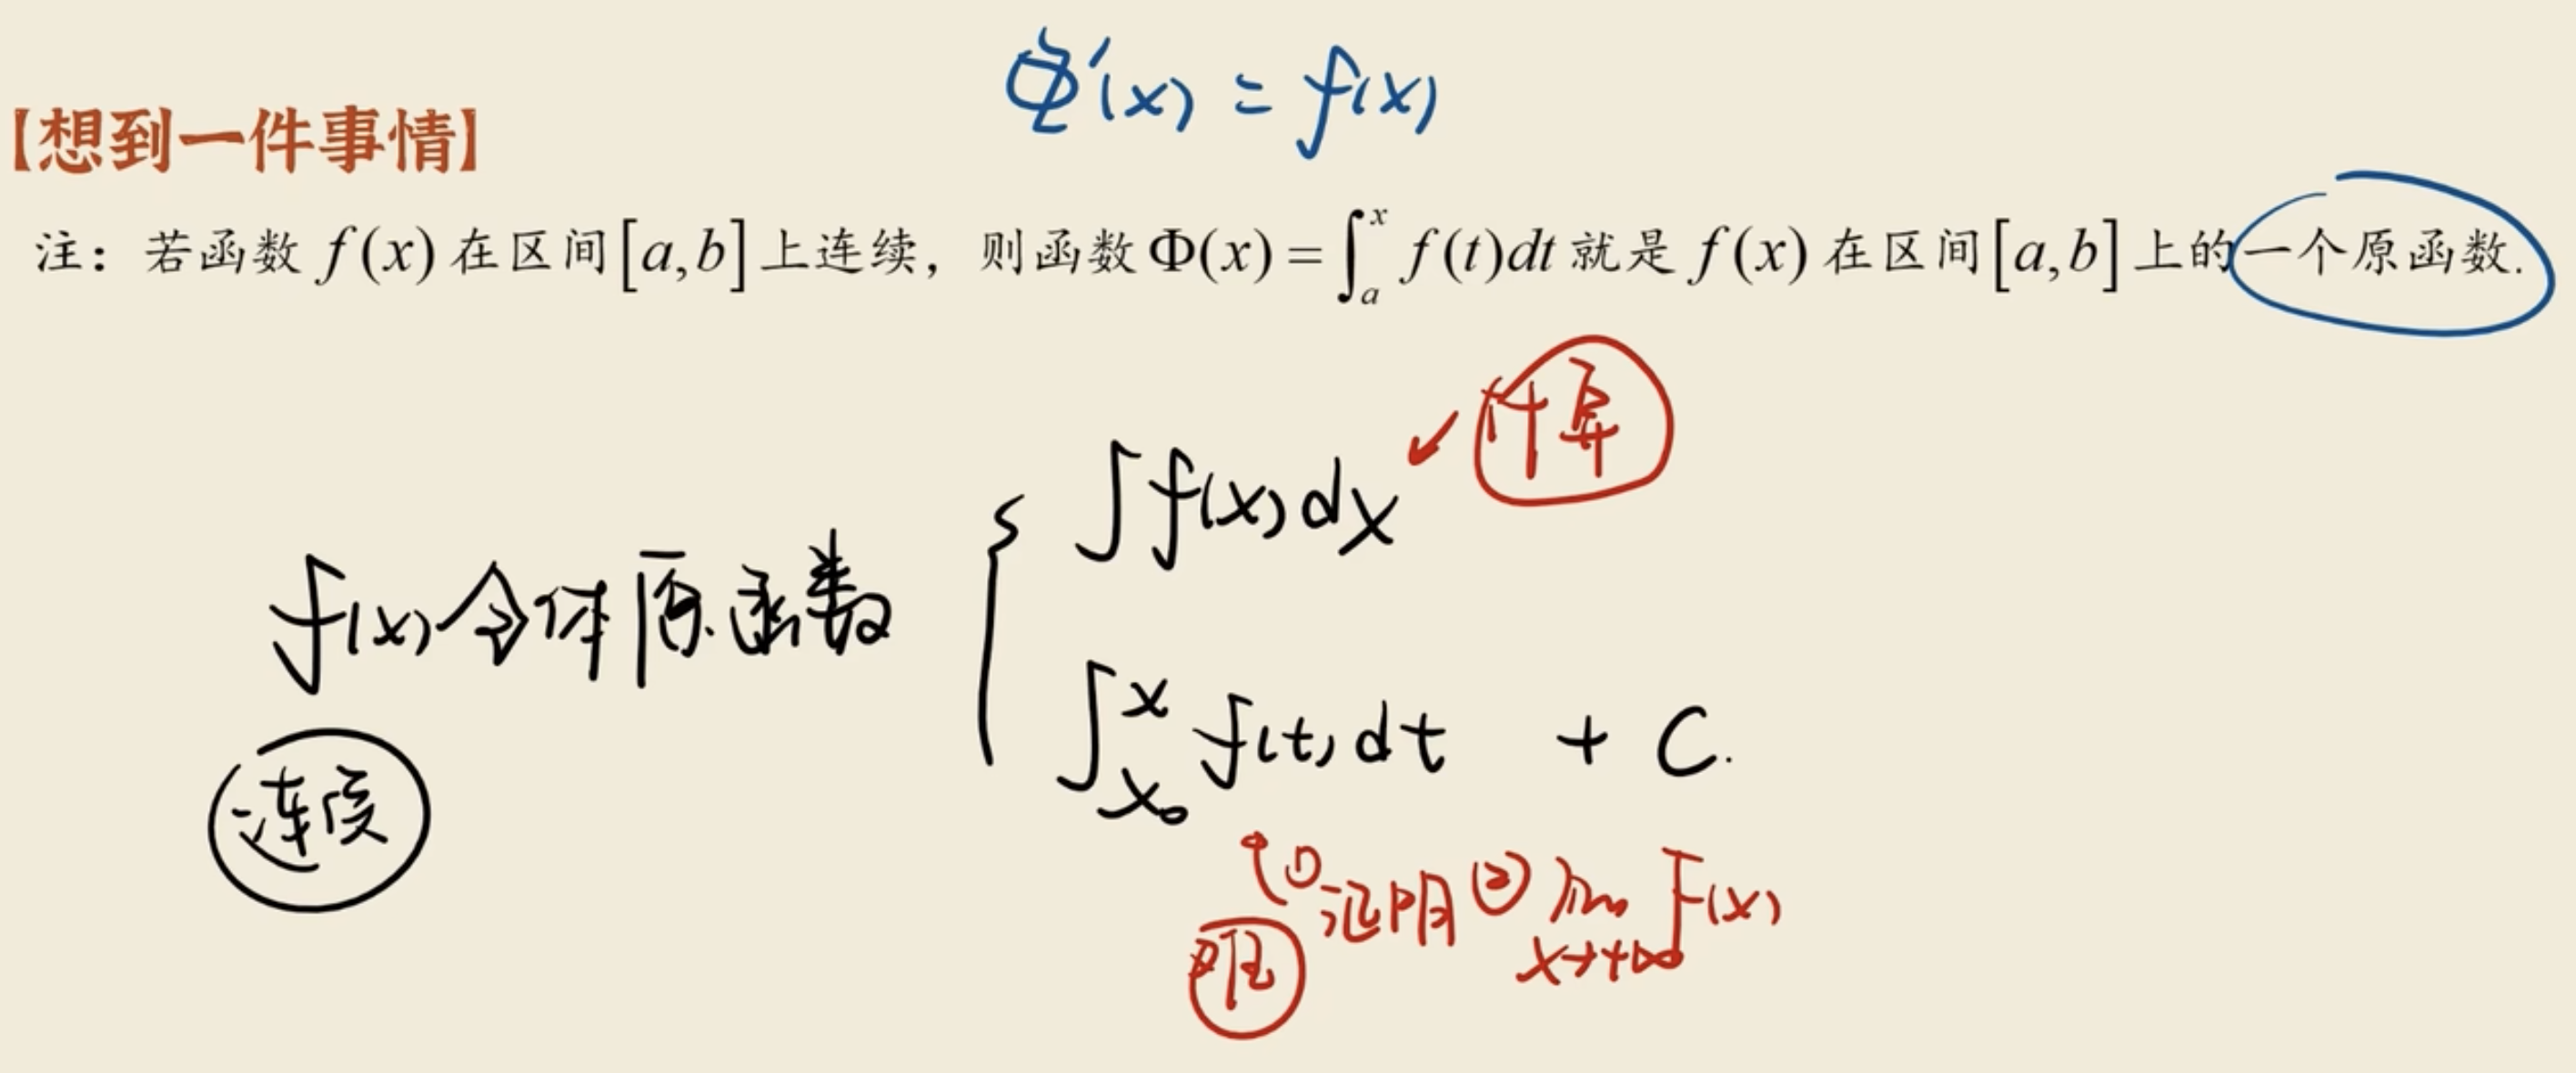 Φ′(x) = f(x)
【想到一件事情】
注：若函数 f(x) 在区间[a,b]上连续，则函数 Φ(x) = ∫ₐˣ f(t)dt 就是 f(x) 在区间[a,b]上的一个原函数.
计算
∫f(x)dx
f(x)全体原函数
∫ₓ₀ˣ f(t)dt + C.
连续
①证明 ② lim x→+∞ F(x)